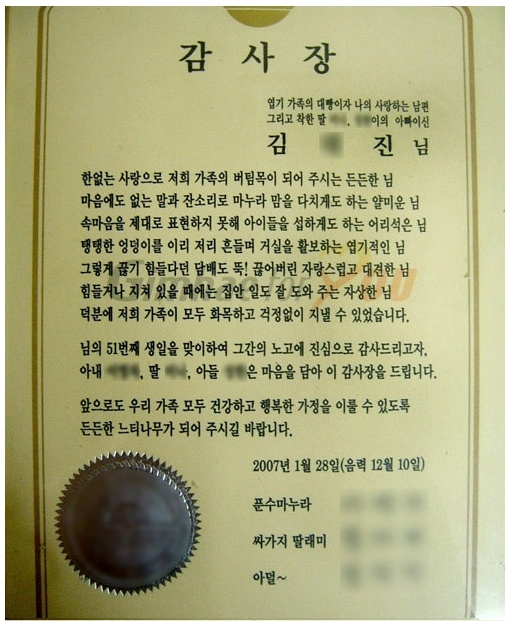 감 사 장
엽기 가족의 대빵이자 나의 사랑하는 남편
그리고 착한 딸 , 이의 아빠이신
김 진 님
한없는 사랑으로 저희 가족의 버팀목이 되어 주시는 든든한 님
마음에도 없는 말과 잔소리로 마누라 맘을 다치게도 하는 얄미운 님
속마음을 제대로 표현하지 못해 아이들을 섭하게도 하는 어리석은 님
탱탱한 엉덩이를 이리 저리 흔들며 거실을 활보하는 엽기적인 님
그렇게 끊기 힘들다던 담배도 뚝! 끊어버린 자랑스럽고 대견한 님
힘들거나 지쳐 있을 때에는 집안 일도 잘 도와 주는 자상한 님
덕분에 저희 가족이 모두 화목하고 걱정없이 지낼 수 있었습니다.
님의 51번째 생일을 맞이하여 그간의 노고에 진심으로 감사드리고자,
아내 , 딸 , 아들 은 마음을 담아 이 감사장을 드립니다.
앞으로도 우리 가족 모두 건강하고 행복한 가정을 이룰 수 있도록
든든한 느티나무가 되어 주시길 바랍니다.
2007년 1월 28일(음력 12월 10일)
푼수마누라
싸가지 딸래미
아덜~